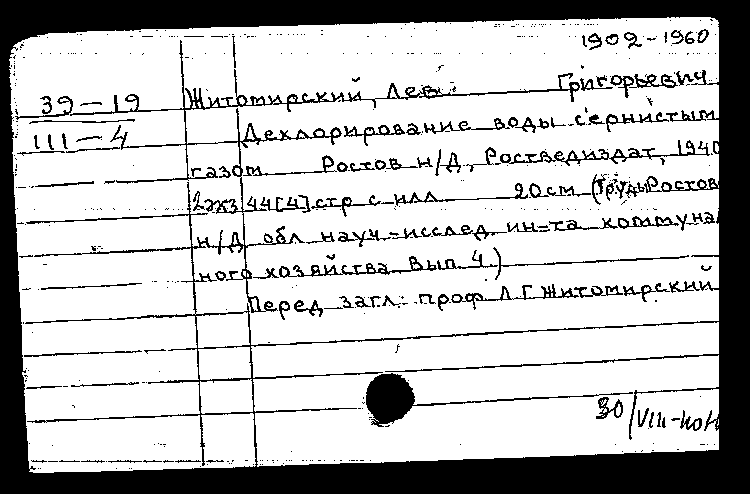 1902-1960
39-19 Житомирский, Лев Григорьевич
III-4 Дехлорирование воды сернистым
газом Ростов н/Д, Роствediздат, 1940
2экз 44[4] стр с илл 20см (Труды Ростов
н/Д обл науч.-исслед. ин-та коммуна
ного хозяйства Вып. 4)
Перед загл: проф Л Г Житомирский
30/VIII-